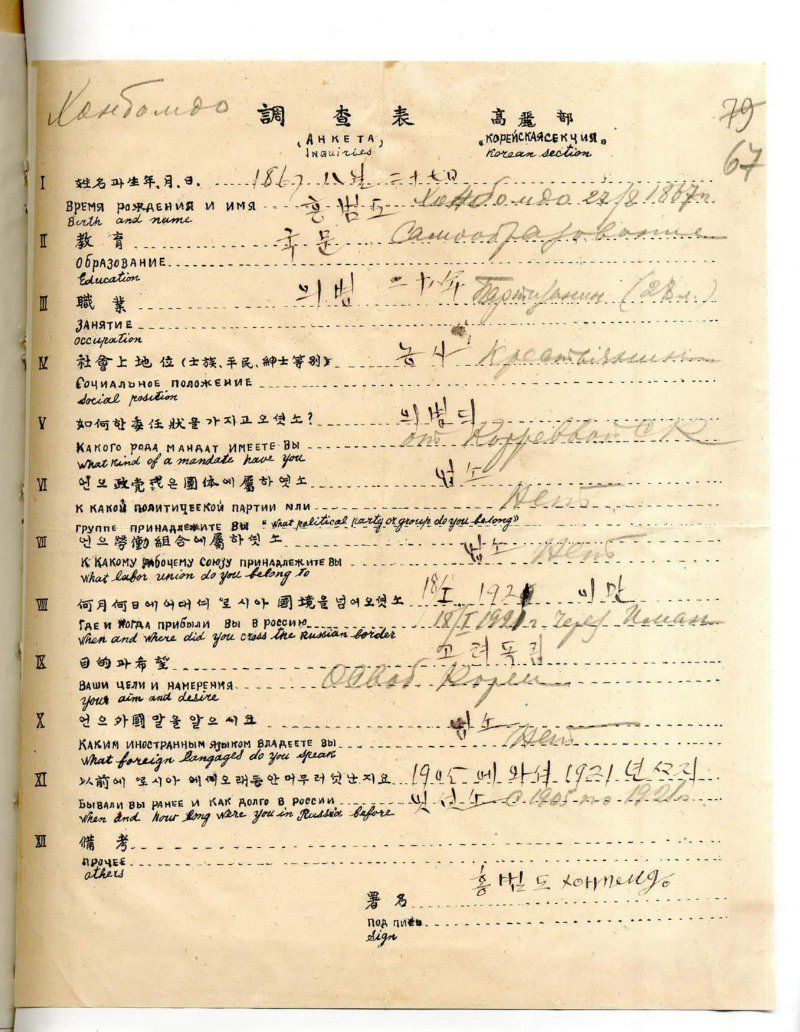 Ханбомдо
調查表 高麗部 79
„АНКЕТА„ „КОРЕЙСКАЯ СЕКЦИЯ„ 67
Inquiries Korean section
I 姓名과生年、月、日. 1867 八월 二十七日
ВРЕМЯ РОЖДЕНИЯ И ИМЯ 홍범도 Ханбомдо 27/8 1867г.
Birth and name
II 教育 국문 Самообразование
ОБРАЗОВАНИЕ
Education
III 職業 의병 Партизанин
ЗАНЯТИЕ
occupation
IV 社會上地位(士族、平民、紳士等別) 농사
СОЦИАЛЬНОЕ ПОЛОЖЕНИЕ
Social position
V 如何한委任狀을가지고오셧소? 의병듸
КАКОГО РОДА МАНДАТ ИМЕЕТЕ ВЫ от
What kind of a mandate have you
VI 언으政党或은團体에屬하엿소 업소
К КАКОЙ ПОЛИТИЧЕСКОЙ ПАРТИИ ИЛИ Нет
ГРУППЕ ПРИНАДЛЕЖИТЕ ВЫ "What political party or group do you belong"
VII 언으勞働組合에屬하엿소 업소 Нет
К КАКОМУ РАБОЧЕМУ СОЮЗУ ПРИНАДЛЕЖИТЕ ВЫ
What labor union do you belong to
VIII 何月何日에어대셔로시아國境을넘어오셧소 18/I 1921 이만
ГДЕ И КОГДА ПРИБЫЛИ ВЫ В РОССИЮ 18/I 1921 г. через Иман
When and where did you cross the Russian border
IX 目的과希望 고려독립
ВАШИ ЦЕЛИ И НАМЕРЕНИЯ Освоб. Кореи
your aim and desire
X 언으外國말을알으시요 업소
КАКИМ ИНОСТРАННЫМ ЯЗЫКОМ ВЛАДЕЕТЕ ВЫ Нет
What foreign langages do you speak
XI 以前에로시아에 오래동안머무러 1905에와셔 1921년
БЫВАЛИ ВЫ РАНЕЕ И КАК ДОЛГО В РОССИИ с 1905 по 1921г.
When and how long were you in Russia before
XII 備考
ПРОЧЕЕ
others
署名 홍범도
ПОДПИСЬ
Sign